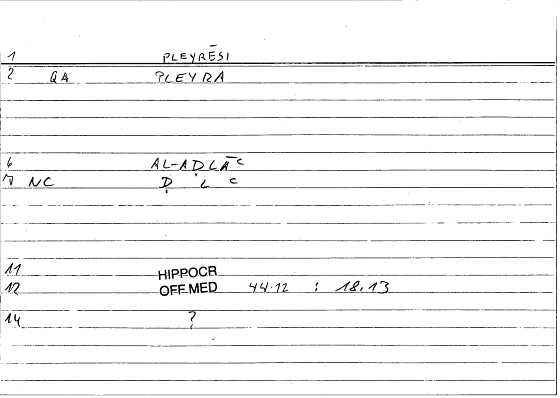 1 PLEYRĒSI
2 QA PLEYRA
6 AL-AḌLĀʿ
7 NC Ḍ L ʿ
11 HIPPOCR
12 OFF MED 44.12 : 18.13
14 ?